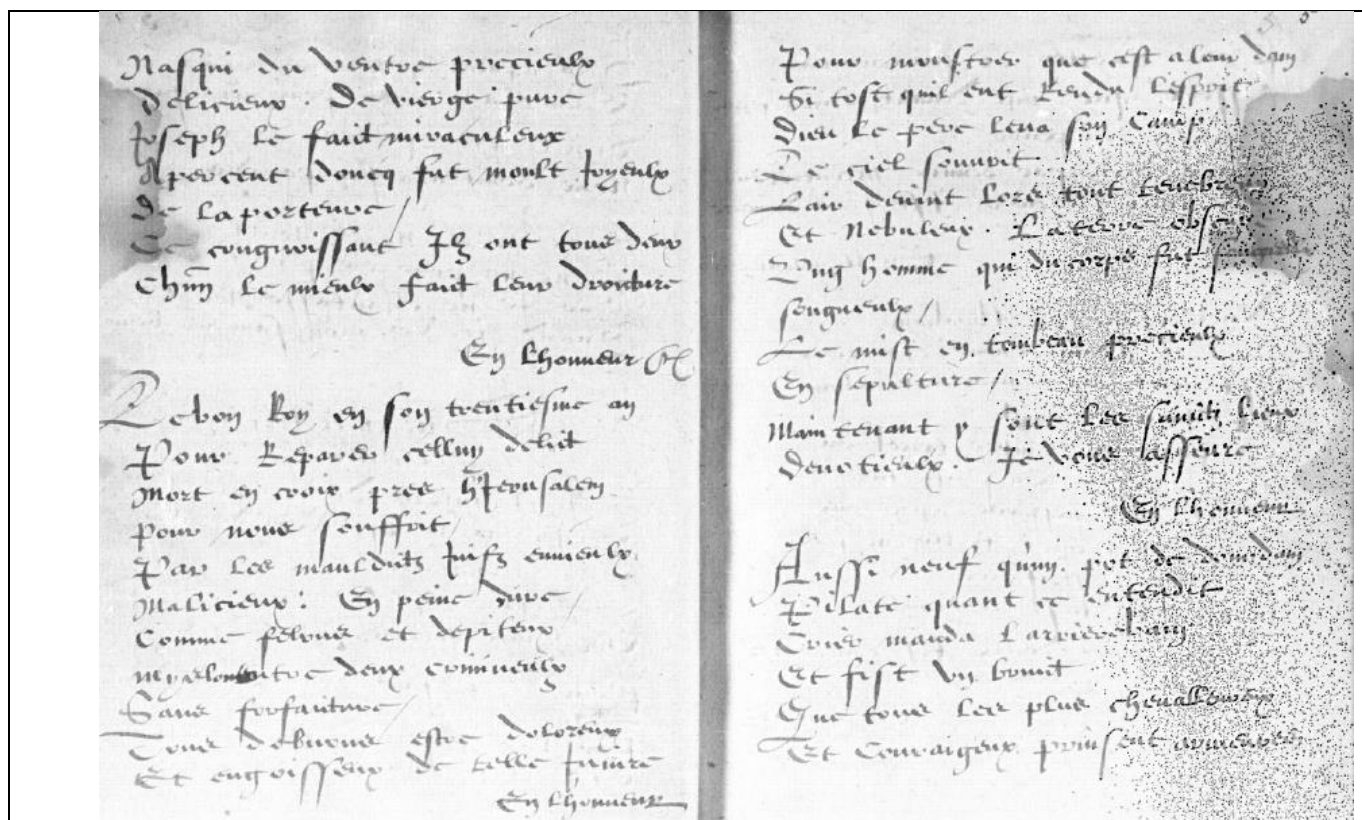 Nasqui du ventre precieulx
delicieux. De vierge pure
Joseph le faict miraculeux
Apercent doncq fut moult Joyeulx
De la porteure /
Ce congnoissant Jlz ont tous deux
Chūn le mieulx faict leur droicture
En lhonneur &c
Le bon Roy en son trentiesme an
Pour Reparer celluy delict
Mort en croix pres hJerusalem
pour nous souffrit /
Par les mauldictz Juifz ennieulx
Malicieux: En peine dure /
Comme felons et depiteux
entre deux crimineulx
Sans forfaicture /
Tous debuons estre doloreux
Et engoisseux de telle Iniure
En lhonneur
Pour monstrer que cest a leur dam
Si tost quil eut Rendu lesprit
Dieu le pere leua son Camp
Le ciel souurit
Lair deuint lors tout tenebreux
Et Nebuleux. La terre obscure
Vng homme qui du corps fut
songneulx /
Le mist en tombeau precieulx
En sepulture /
Maintenant y sont les sainctz lieux
deuotieulx. Je vous asseure
En lhonneur
Aussi neuf quun pot de
Pilate quant ce entendit
Crier manda larriereban
Et fist vn bruit
Que tous les plus cheualleureux
Et Couraigeux prinsent armeures